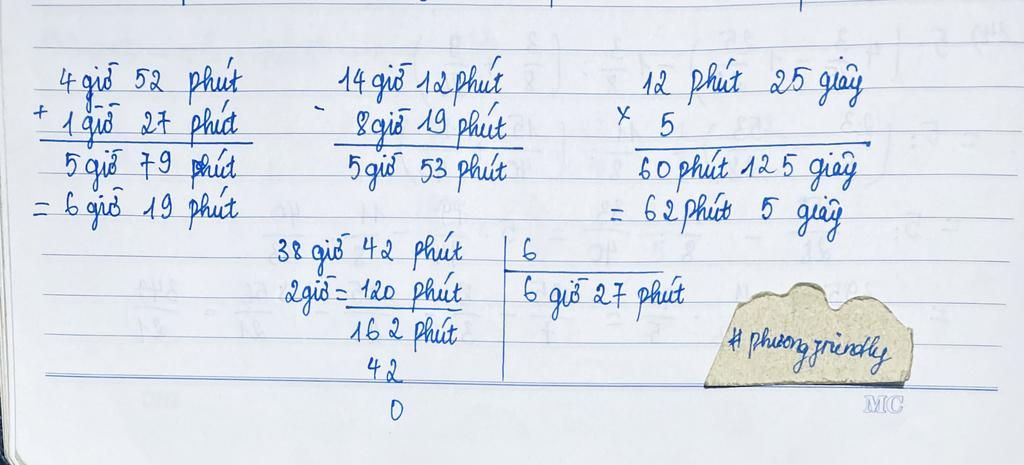 4 giờ 52 phút
+
1 giờ 27 phút
5 giờ 79 phút
= 6 giờ 19 phút
14 giờ 12 phút
-
8 giờ 19 phút
5 giờ 53 phút
12 phút 25 giây
x
5
60 phút 125 giây
= 62 phút 5 giây
38 giờ 42 phút
6
2 giờ = 120 phút
6 giờ 27 phút
162 phút
42
0
# phuongfriendly
MC